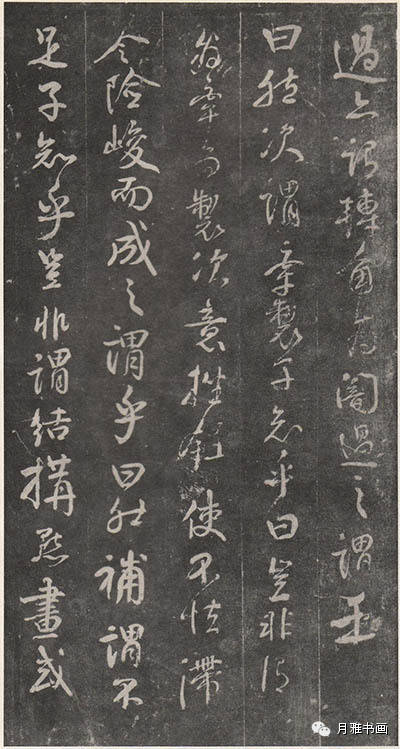 過亦謂轉角為闇過之謂
曰然次謂牽製子知乎曰豈非謂
牽為製次意挫鋒使不怯滯
令險峻而成之謂乎曰然補謂不
足子知乎豈非謂結構點畫或
月雅书画